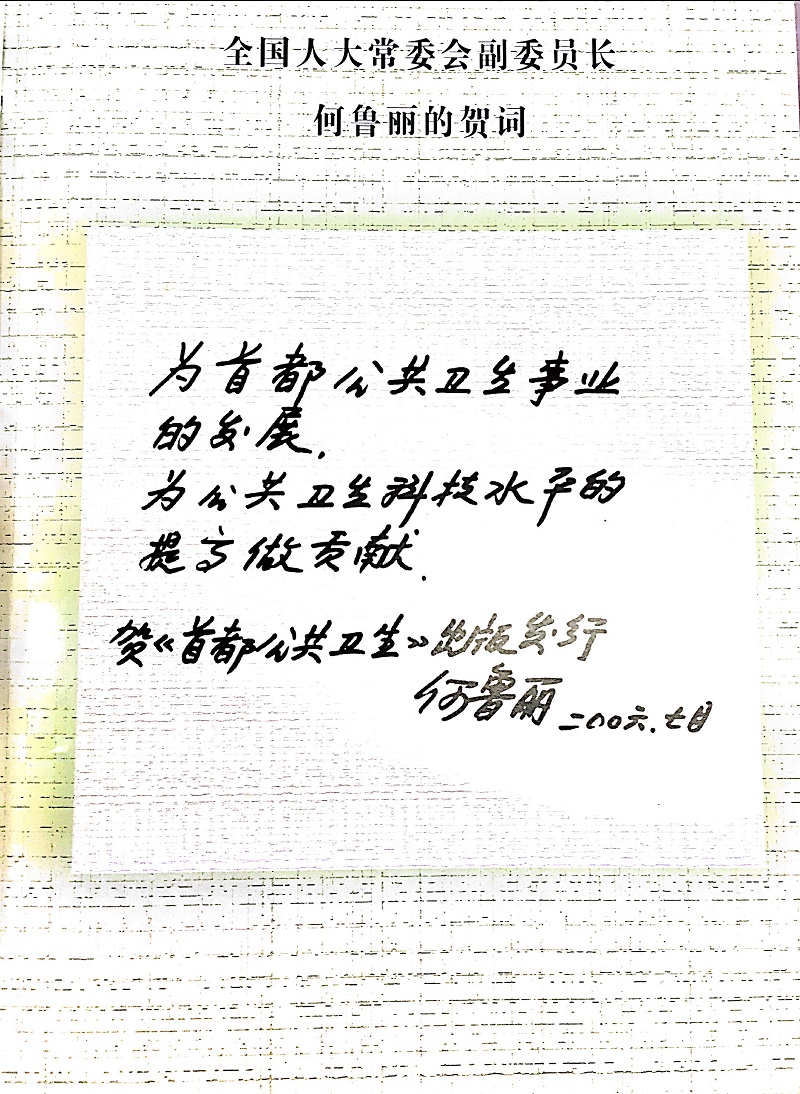 全国人大常委会副委员长
何鲁丽的贺词
为首都公共卫生事业
的发展，
为公共卫生科技水平的
提高做贡献.
贺《首都公共卫生》出版发行
何鲁丽 二〇〇六.七月